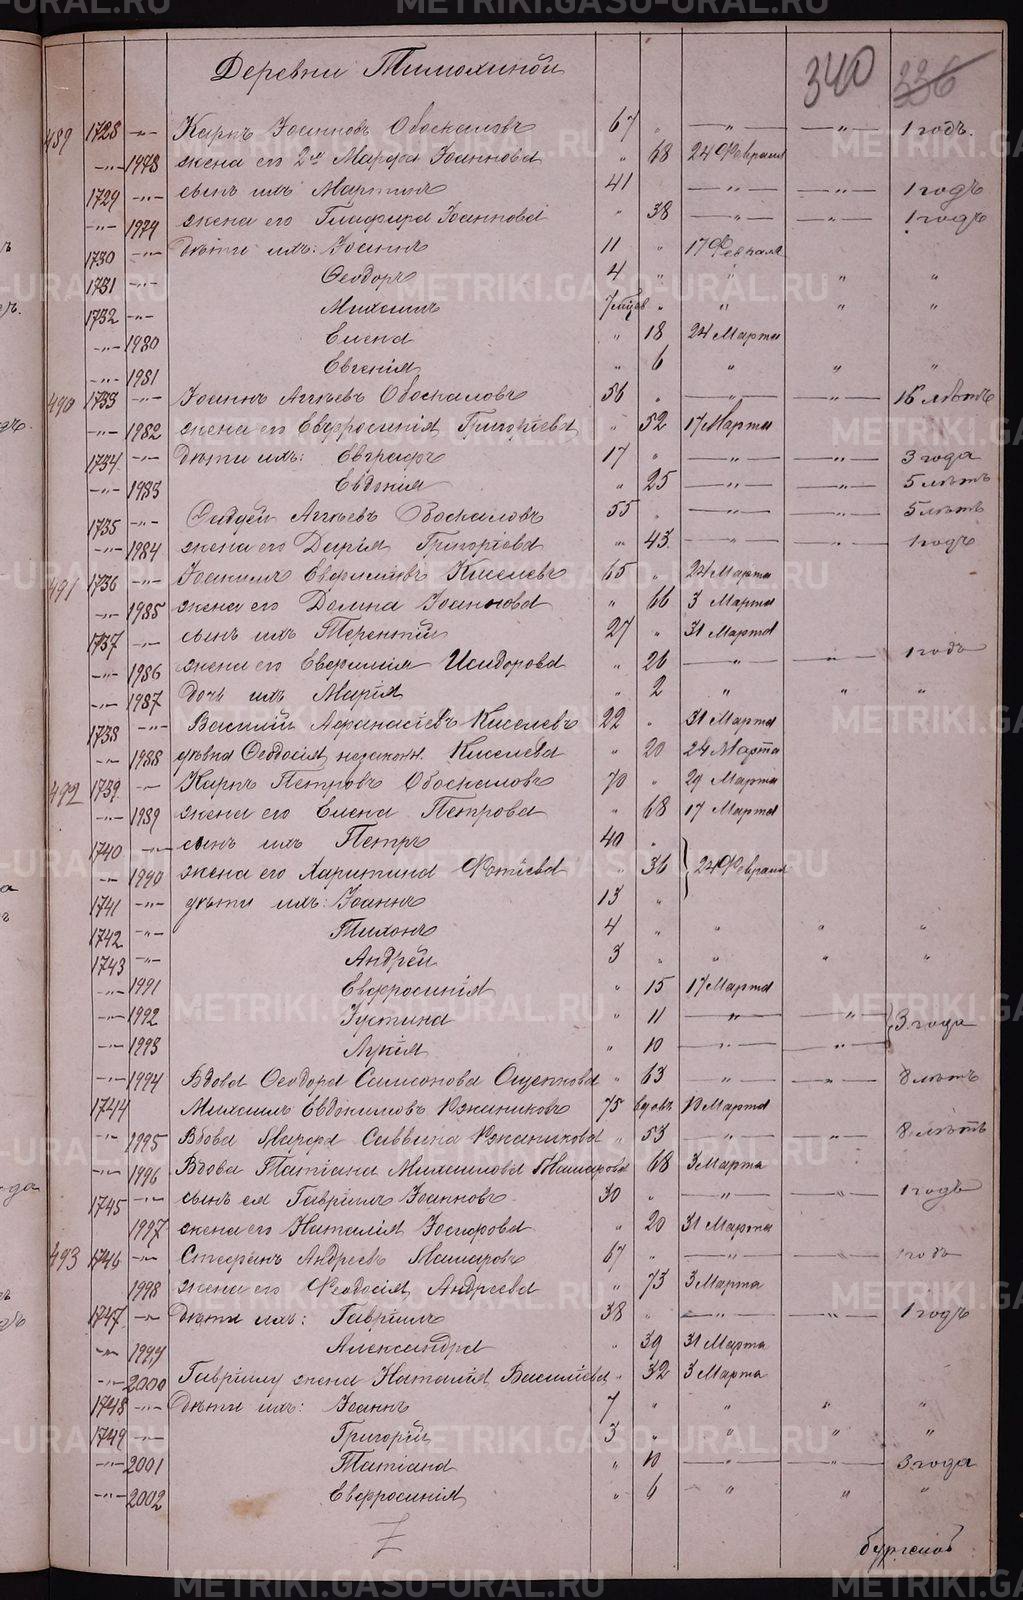 Деревни Тимохиной 340 336
489 1728 —„— Карпъ Іоанновъ Обоскаловъ 67 „ —„— —„— 1 годъ.
—„— 1978 жена его 2я Марфа Іоаннова „ 68 24 Февраля
1729 —„— сынъ ихъ Мартинъ 41 —„— —„— 1 годъ
—„— 1979 жена его Глафира Іоаннова „ 38 —„— —„— 1 годъ
1730 —„— дѣти ихъ: Іоаннъ 11 „ 17 Февраля
1731 —„— Ѳеодоръ 4 „ „ „ „
1732 —„— Михаилъ 7 мцев „ „ „ „
—„— 1980 Елена „ 18 24 Марта
—„— 1981 Евгенія „ 6 „ „ „
490 1733 —„— Іоаннъ Аггѣевъ Обоскаловъ 56 „ —„— —„— 16 лѣтъ
—„— 1982 жена его Евфросинія Григоріева „ 52 17 Марта
1734 —„— дѣти ихъ: Евграфъ 17 „ —„— —„— 3 года
—„— 1983 Евдокія „ 25 —„— —„— 5 лѣтъ
1735 —„— Фаддей Аггѣевъ Обоскаловъ 55 „ —„— —„— 5 лѣтъ
—„— 1984 жена его Дарія Григоріева „ 43 —„— —„— 1 годъ
491 1736 —„— Іоакимъ Евфиміевъ Киселевъ 65 „ 24 Марта
—„— 1985 жена его Домна Іоаннова „ 66 3 Марта
1737 —„— сынъ ихъ Терентій 27 „ 31 Марта
—„— 1986 жена его Евфимія Исидорова „ 26 —„— —„— 1 годъ
—„— 1987 дочь ихъ Марія „ 2 „ „ „
1738 —„— Василій Афанасіевъ Киселевъ 22 „ 31 Марта
—„— 1988 дѣвка Ѳеодосія незаконн. Киселева „ 20 24 Марта
492 1739 —„— Карпъ Петровъ Обоскаловъ 70 „ 29 Марта
—„— 1989 жена его Елена Петрова „ 68 17 Марта
1740 —„— сынъ ихъ Петръ 40 „
—„— 1990 жена его Харитина Фотіева „ 36 24 Февраля
1741 —„— дѣти ихъ: Іоаннъ 13 „
1742 —„— Тихонъ 4 „ „ „ „
1743 —„— Андрей 3 „ „ „ „
—„— 1991 Евфросинія „ 15 17 Марта
—„— 1992 Іустина „ 11 —„— —„— 3 года
—„— 1993 Лукія „ 10 —„— —„—
—„— 1994 Вдова Ѳеодора Самсонова Ощепкова „ 63 —„— —„— 8 лѣтъ
1744 Михаилъ Евдокимовъ Ржаниковъ 75 вдовъ 10 Марта
—„— 1995 Вдова Марфа Саввина Ржаникова „ 53 —„— —„— 8 лѣтъ
—„— 1996 Вдова Татіана Михаилова „ 68 3 Марта
1745 —„— сынъ ея Гавріилъ Іоанновъ 30 „ —„— —„— 1 годъ
1997 жена его Наталія Іосифова „ 20 31 Марта
493 1746 —„— Стефанъ Андреевъ 67 „ —„— —„— 1 годъ
1998 жена его Ѳеодосія Андреева „ 73 3 Марта
1747 —„— дѣти ихъ: Гавріилъ 38 „ —„— —„— 1 годъ
—„— 1999 Александра „ 39 31 Марта
—„— 2000 Гавріилу жена Наталія Василіева „ 32 3 Марта
1748 —„— дѣти ихъ: Іоаннъ 7 „ „ „ „
1749 —„— Григорій 3 „ „ „ „
—„— 2001 Татіана „ 10 —„— —„— 3 года
—„— 2002 Евфросинія „ 6 „ „ „
METRIKI.GASO-URAL.RU